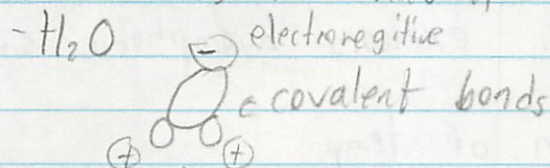 - H₂O - electronegitive
← covalent bonds
+ +